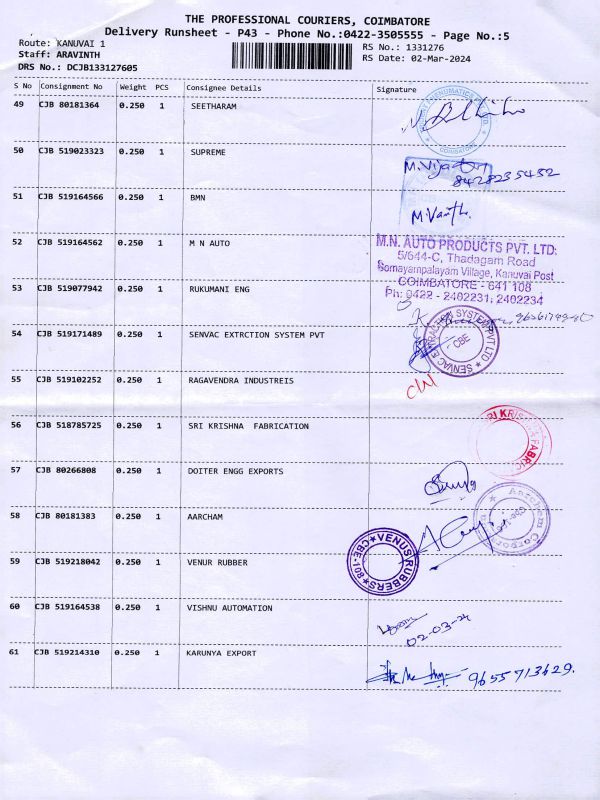 THE PROFESSIONAL COURIERS, COIMBATORE
Delivery Runsheet - P43 - Phone No.:0422-3505555 - Page No.:5
Route: KANUVAI 1
Staff: ARAVINTH
DRS No.: DCJB133127605
RS No.: 1331276
RS Date: 02-Mar-2024
S No Consignment No Weight PCS Consignee Details Signature
49 CJB 80181364 0.250 1 SEETHARAM
COIMBATORE
50 CJB 519023323 0.250 1 SUPREME
8428235452
51 CJB 519164566 0.250 1 BMN
52 CJB 519164562 0.250 1 M N AUTO
M.N. AUTO PRODUCTS PVT. LTD.
5/644-C, Thadagam Road
Somayampalayam Village, Kanuvai Post
COIMBATORE - 641 108
Ph: 0422 - 2402231, 2402234
53 CJB 519077942 0.250 1 RUKUMANI ENG
54 CJB 519171489 0.250 1 SENVAC EXTRCTION SYSTEM PVT
SENVAC EXTRACTION SYSTEM PVT LTD
CBE
55 CJB 519102252 0.250 1 RAGAVENDRA INDUSTREIS
56 CJB 518785725 0.250 1 SRI KRISHNA FABRICATION
57 CJB 80266808 0.250 1 DOITER ENGG EXPORTS
58 CJB 80181383 0.250 1 AARCHAM
Aarchem
59 CJB 519218042 0.250 1 VENUR RUBBER
VENUS RUBBERS
60 CJB 519164538 0.250 1 VISHNU AUTOMATION
02-03-24
61 CJB 519214310 0.250 1 KARUNYA EXPORT
9655713629.